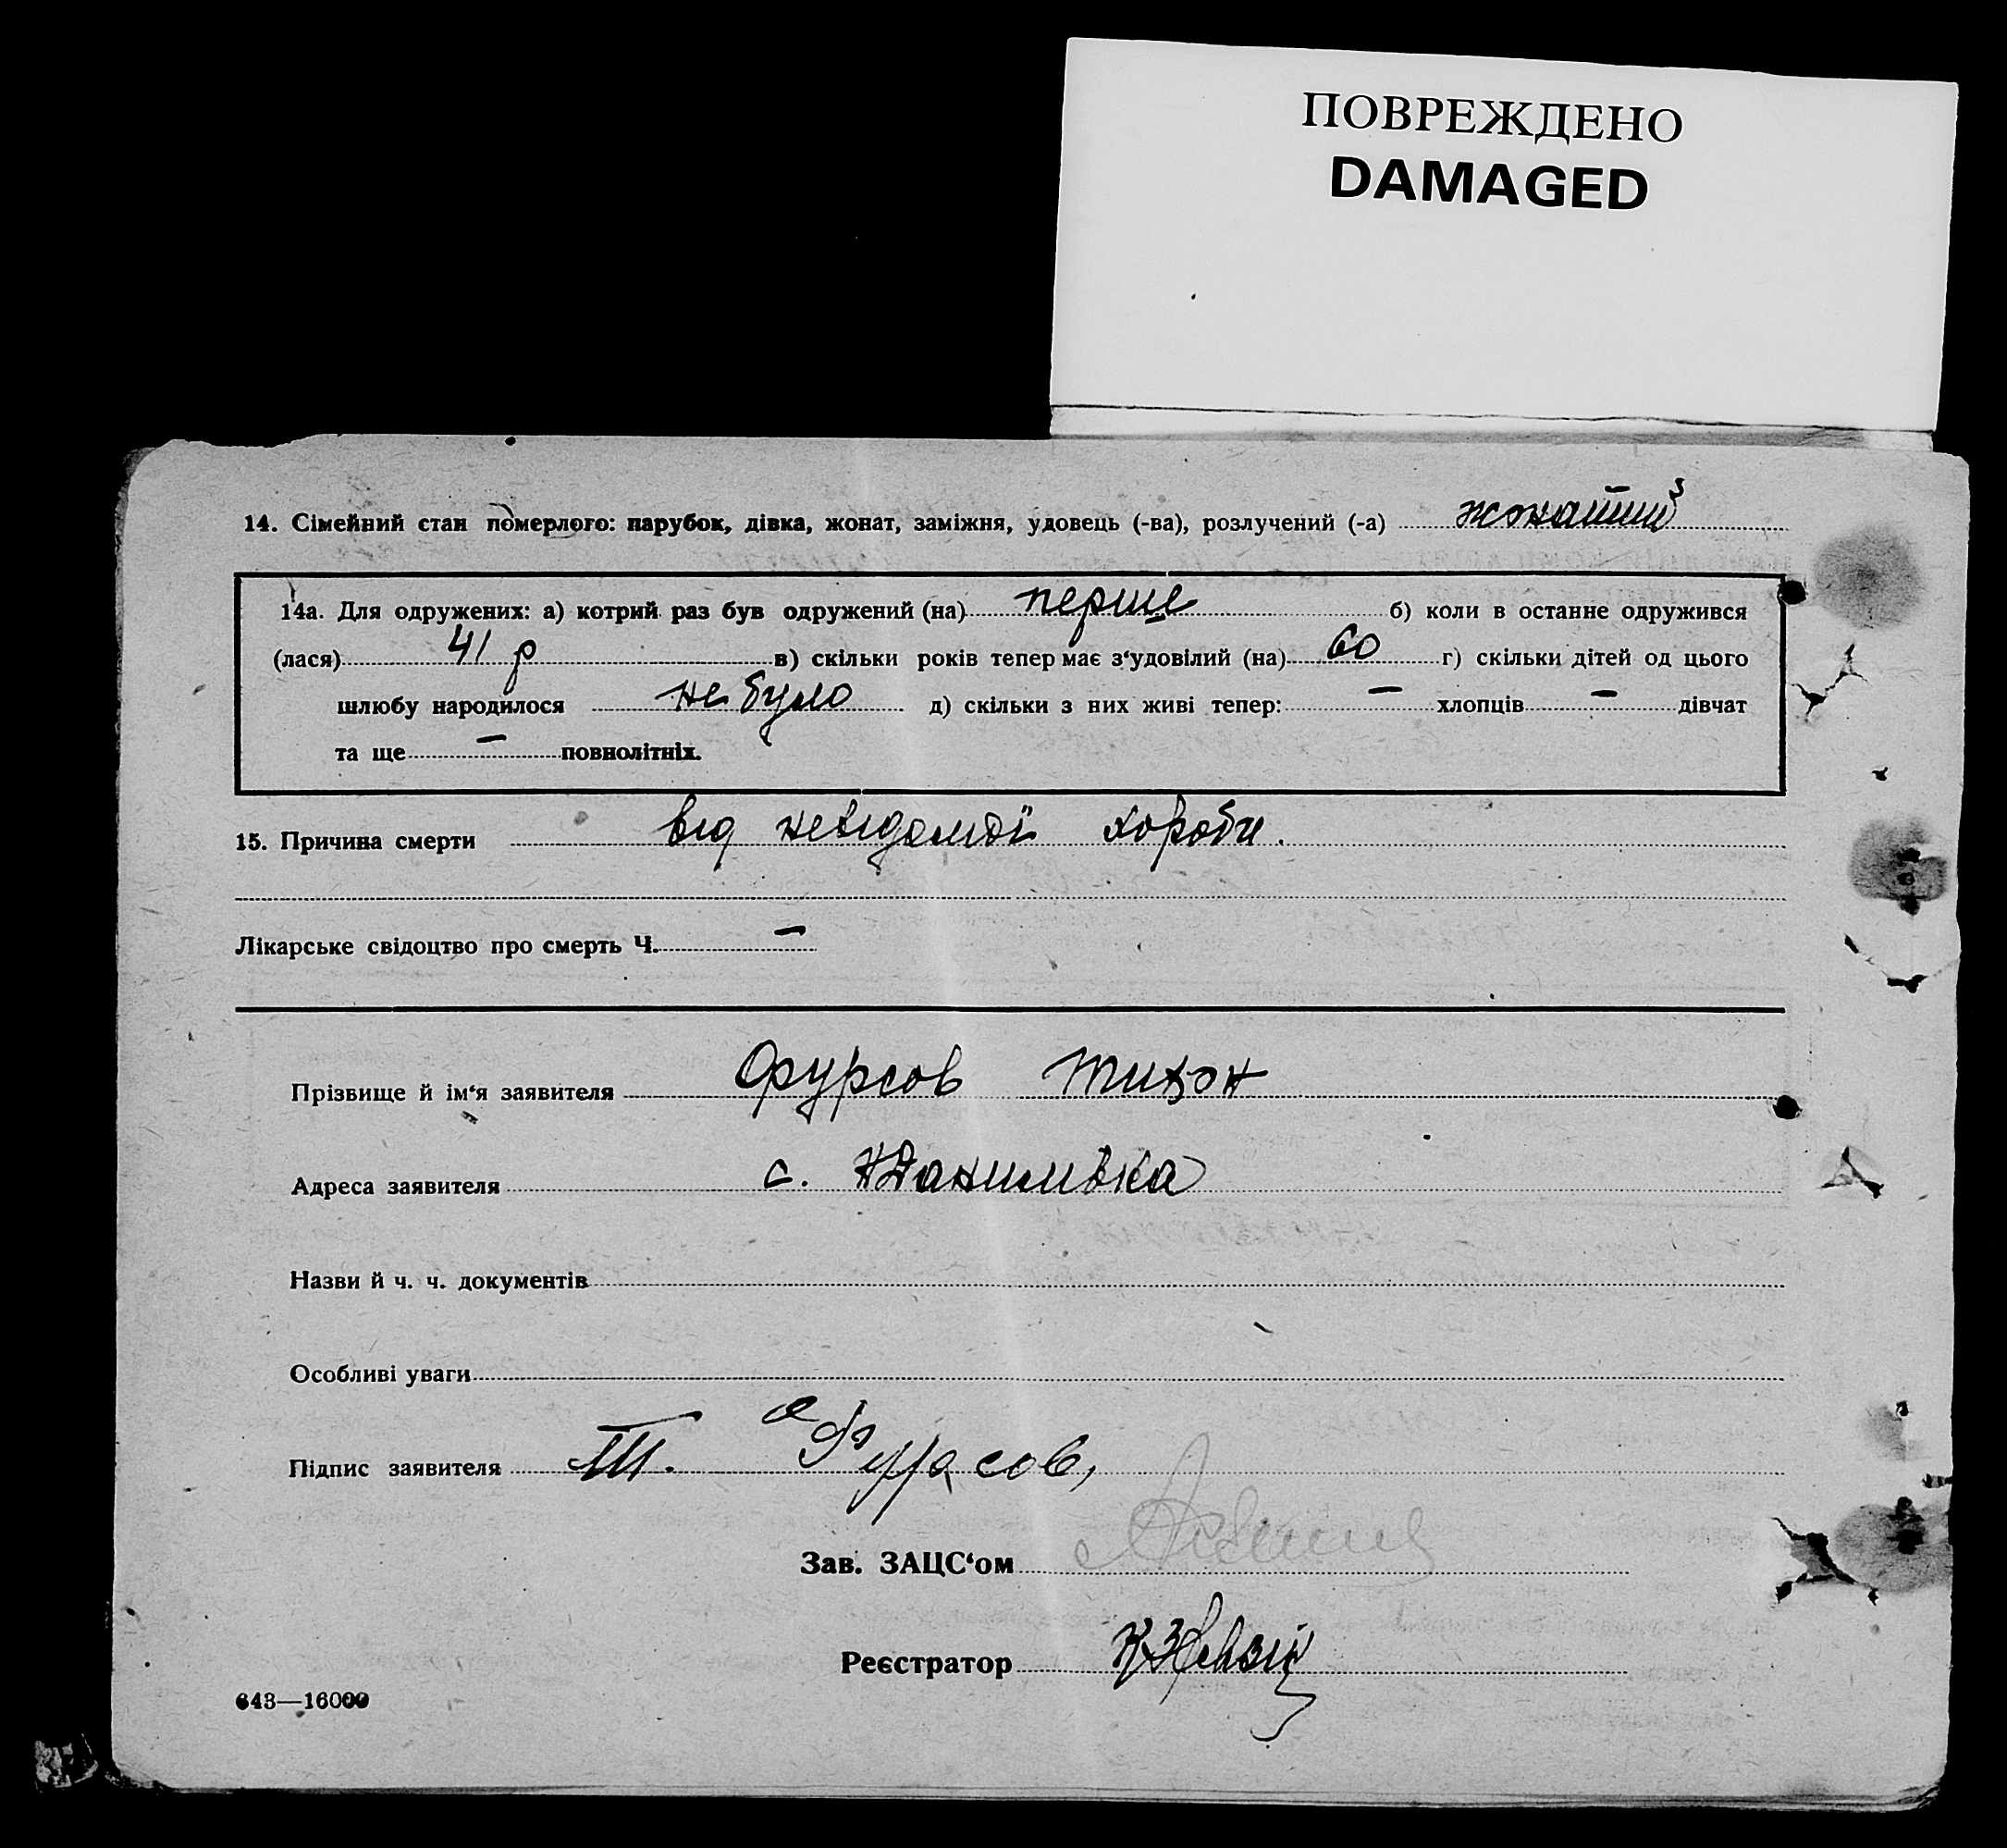 ПОВРЕЖДЕНО
DAMAGED
14. Сімейний стан померлого: парубок, дівка, жонат, заміжня, удовець (-ва), розлучений (-а) жонатий
14а. Для одружених: а) котрий раз був одружений (на) перше б) коли в останнє одружився
(лася) 41 р в) скільки років тепер має з‘удовілий (на) 60 г) скільки дітей од цього
шлюбу народилося не було д) скільки з них живі тепер: — хлопців — дівчат
та ще — повнолітніх.
15. Причина смерти від невідомої хороби.
Лікарське свідоцтво про смерть Ч. —
Прізвище й ім‘я заявителя Фурсов Тихон
Адреса заявителя с. Данилівка
Назви й ч. ч. документів
Особливі уваги
Підпис заявителя Т. Фурсов,
Зав. ЗАЦС‘ом
Реєстратор
643—16000